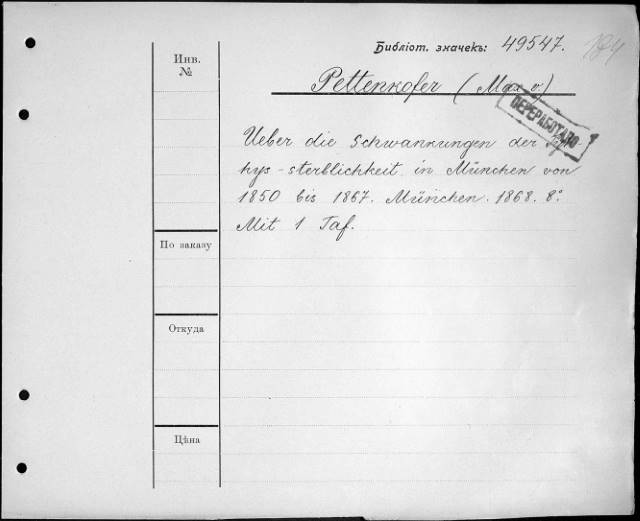 Библіот. значекъ: 49547.
Инв.
№
Pettenkofer (Max v.)
ПЕРЕРАБОТАНО
Ueber die Schwankungen der Ty-
phus-sterblichkeit in München von
1850 bis 1867. München. 1868. 8°.
Mit 1 Taf.
По заказу
Откуда
Цѣна